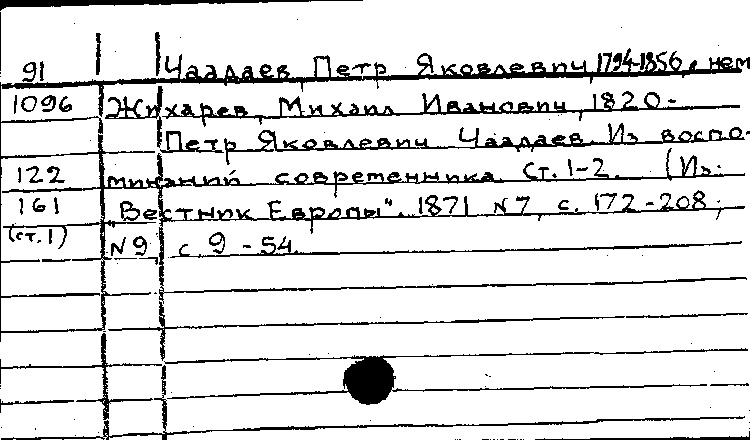 91 Чаадаев, Петр Яковлевич, 1794-1856, о нем
1096 Жихарев, Михаил Иванович, 1820-
Петр Яковлевич Чаадаев. Из воспо-
122 минаний современника. Ст. 1-2. (Из:
161 "Вестник Европы". 1871 N7, с. 172-208;
(ст. 1) N9 с 9-54.